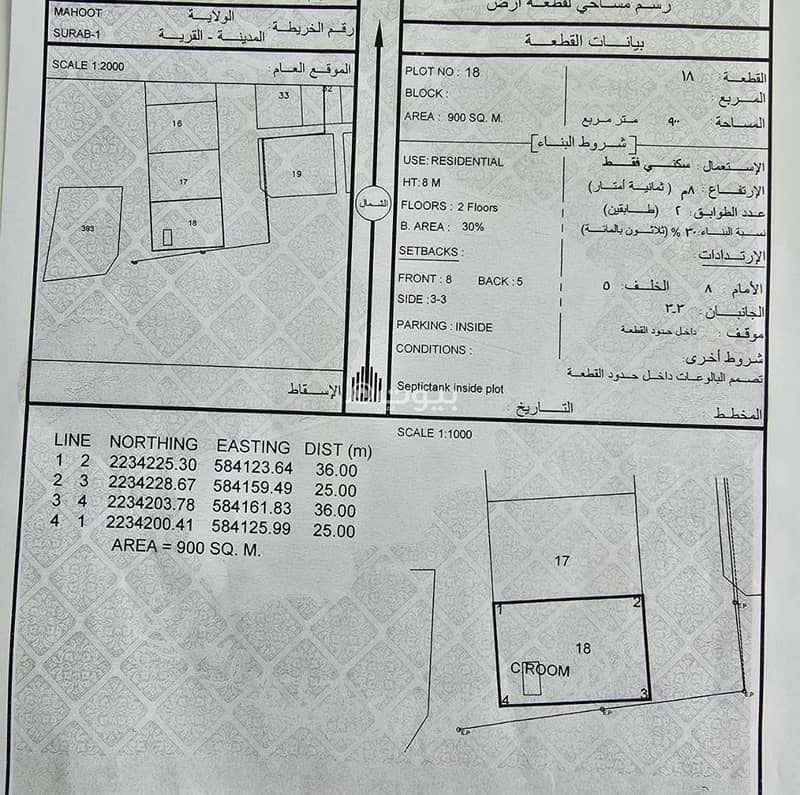 رسم مساحي لقطعة أرض
MAHOOT
الولاية
رقم الخريطة:
SURAB-1
المدينة - القرية
بيانات القطعة
SCALE 1:2000
الموقع العام:
33
32
16
17
19
18
393
الإسقاط
الشمال
PLOT NO : 18
القطعة : ١٨
BLOCK :
المربع :
AREA : 900 SQ. M.
المساحة : ٩٠٠ متر مربع
شروط البناء
USE: RESIDENTIAL
الإستعمال : سكني فقط
HT: 8 M
الإرتفاع : ٨م (ثمانية أمتار)
FLOORS : 2 Floors
عدد الطوابق : ٢ (طابقين)
B. AREA : 30%
نسبة البناء : ٣٠ % (ثلاثون بالمائة)
SETBACKS :
الإرتدادات :
FRONT : 8 BACK : 5
الأمام : ٨ الخلف : ٥
SIDE : 3-3
الجانبان : ٣-٣
PARKING : INSIDE
موقف : داخل حدود القطعة
CONDITIONS :
شروط أخرى:
تصمم البالوعات داخل حدود القطعة
Septictank inside plot
المخطط :
التاريخ :
بيوت
SCALE 1:1000
LINE NORTHING EASTING DIST (m)
1 2 2234225.30 584123.64 36.00
2 3 2234228.67 584159.49 25.00
3 4 2234203.78 584161.83 36.00
4 1 2234200.41 584125.99 25.00
AREA = 900 SQ. M.
17
1
2
18
C ROOM
4
3
E.P
E.P
E.P
E.P